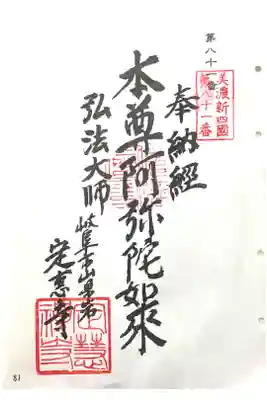 第八十一番
美濃新四國
第八十一番
奉納經
本尊阿弥陀如来
弘法大師
岐阜市山県岩
定恵寺
定慧禅寺
81